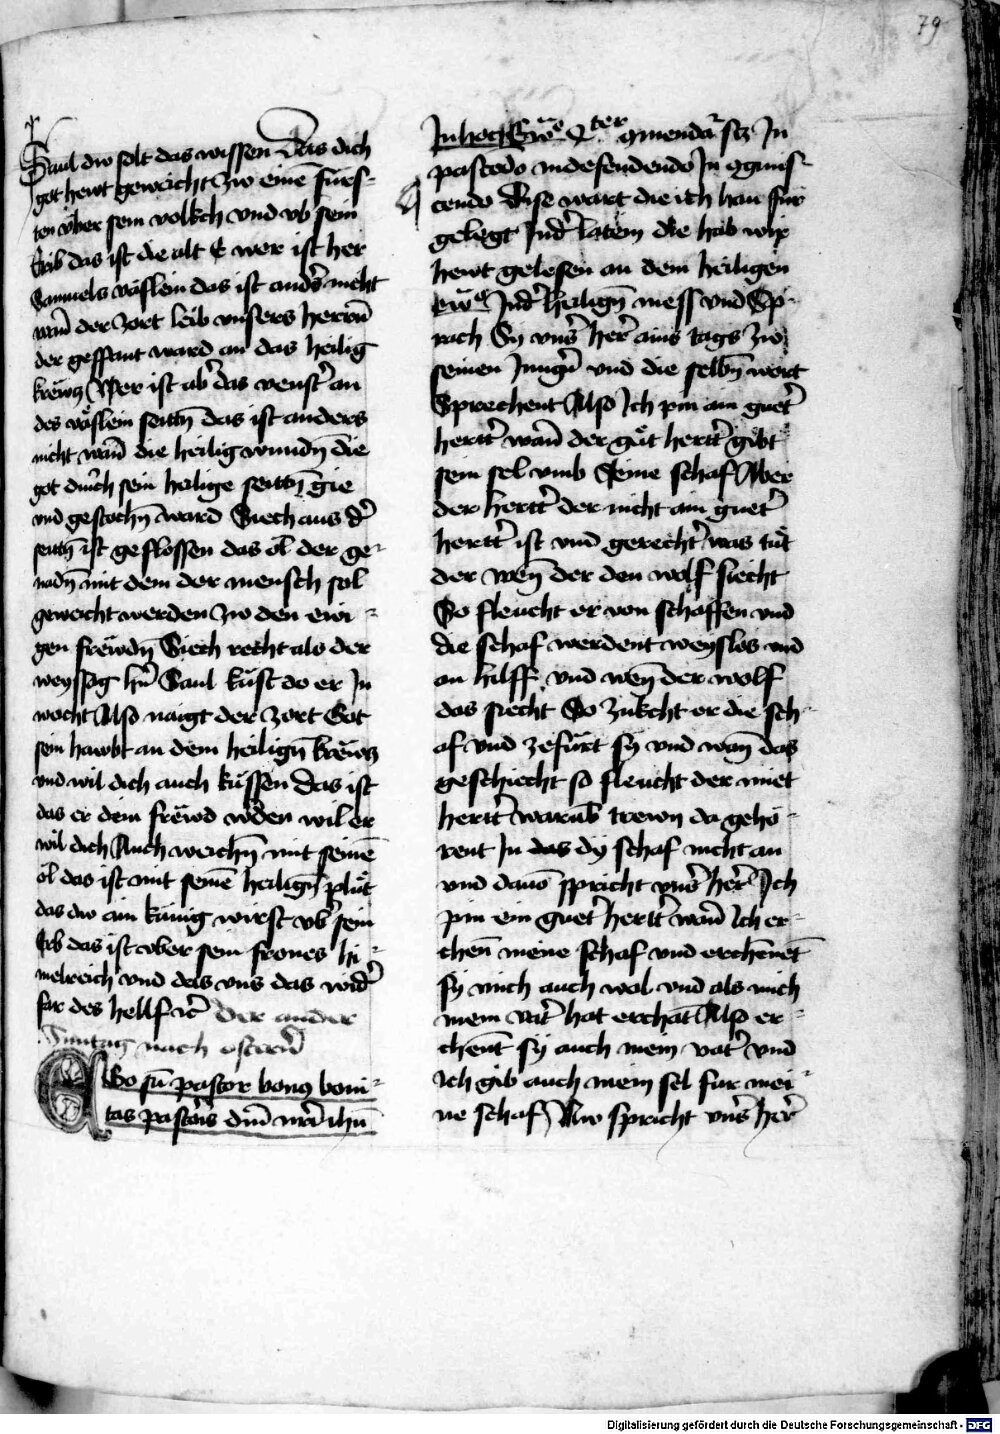 79
Saul dw solt das wissen Das dich
got hewt geweicht zw eine͂ furs-
ten vber sein volkch vnd vb sein
Erib das ist die alt E wer ist her
Samuels väslein das ist and͛s nicht
wan͂ der zort leib vnsers herrn͂
der gespant ward an das heilig
krëwcz Wer ist ab͛ das venst͛ an
des väslein seittn͂ das ist anders
nicht wan͂ die heilig wundn͂ die
got durch sein heilige seittn͂ gie
vnd gestochn͂ ward Siech aus d͛
seittn͂ ist geflossen das öl der ge-
nadn͂ mit dem der mensch sol
geweicht werden zw den ewi-
gen frëwdn͂ Siech recht als der
weyssag h͛n Saul küst do er In
wocht Also naigt der zort Got
sein hawbt an dem heilign͂ krëwcz
vnd wil dich auch küssen Das ist
das er dein frëwd w͛den wil er
wil dich Auch weichn͂ mit seine͂
öl das ist mit seine͂ heilign͂ plůt
das dw ain künig wirst vb͛ sein
Erb das ist vber sein frones hi-
melreich vnd das vns das wid͛
far des hellf ic͛ Der ander
Suntag nach ostern͂
EGo su͂ pastor bonꝯ boni-
tas pasto͛is dn͂i nr͂i ihu͂
In hoc Ewͣᵉ Qᵗᵉʳ ꝯmendaʳ scz In
pascendo In defendendo In ꝯgnus-
cendo Dise wart die ich han für
gelegt Ind͛ latein die hab wir
hewt gelesen an dem heiligen
ewͣᵉ Ind͛ heilign͂ mess vnd Sp-
rach Sy vns͛ her͛ ains tags zw
seinen Jung͛n vnd die selbn͂ wort
Sprechent Also Ich pin ain guet͛
hertt͛ wan͂ der güt hertt͛ gibt
sein sel vmb Seine schaf Aber
der hertt͛ der nicht ain guet͛
hertt͛ ist vnd gerecht͛ was tůt
der wen͂ der den wolf siecht
So fleucht er von schaffen vnd
die schaf werdent weyslos vnd
an hilff vnd wen͂ der wolf
das siecht So zukcht er die sch-
af vnd zefürt sy vnd wan͂ das
geschiecht so fleucht der miet
hertt͛ waru͂b trewn da gehö-
rent In das dy schaf nicht an
vnd dauo͂ spricht vns͛ her͛ Ich
pin ein guet͛ hertt͛ wan͂ Ich er-
chen͂ meine schaf vnd erchēnēt
sy mich auch wol vnd als mich
mein vat͛ hat erchāt Also er-
chēnt sy auch mein vat͛ vnd
Ich gib auch mein sel fur mei-
ne schaf Nw spricht vns͛ her͛
Digitalisierung gefördert durch die Deutsche Forschungsgemeinschaft - DFG